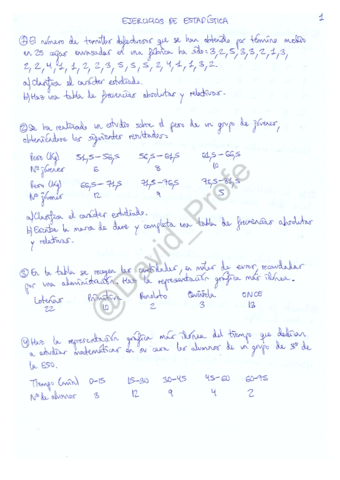 EJERCICIOS DE ESTADÍSTICA 1
① El número de tornillos defectuosos que se han obtenido por término medio
en 25 cajas envasadas en una fábrica ha sido: 3, 2, 5, 3, 3, 2, 1, 3,
2, 2, 4, 1, 1, 2, 2, 3, 5, 5, 5, 2, 4, 1, 1, 3, 2.
a) Clasifica el carácter estudiado.
b) Haz una tabla de frecuencias absolutas y relativas.
② Se ha realizado un estudio sobre el peso de un grupo de jóvenes,
obteniéndose los siguientes resultados:
Peso (Kg) 51,5-56,5 56,5-61,5 61,5-66,5
Nº jóvenes 6 8 10
Peso (Kg) 66,5-71,5 71,5-76,5 76,5-81,5
Nº jóvenes 12 9 5
a) Clasifica el carácter estudiado.
b) Escribe la marca de clase y completa una tabla de frecuencias absolutas
y relativas.
③ En la tabla se recogen las cantidades, en miles de euros, recaudadas
por una administración. Haz la representación gráfica más idónea.
Loterías Primitiva Bonoloto Quiniela ONCE
22 10 2 3 13
④ Haz la representación gráfica más idónea del tiempo que dedican
a estudiar matemáticas en su casa los alumnos de un grupo de 3º de
la ESO.
Tiempo (min) 0-15 15-30 30-45 45-60 60-75
Nº de alumnos 3 12 9 4 2
@David_Profe